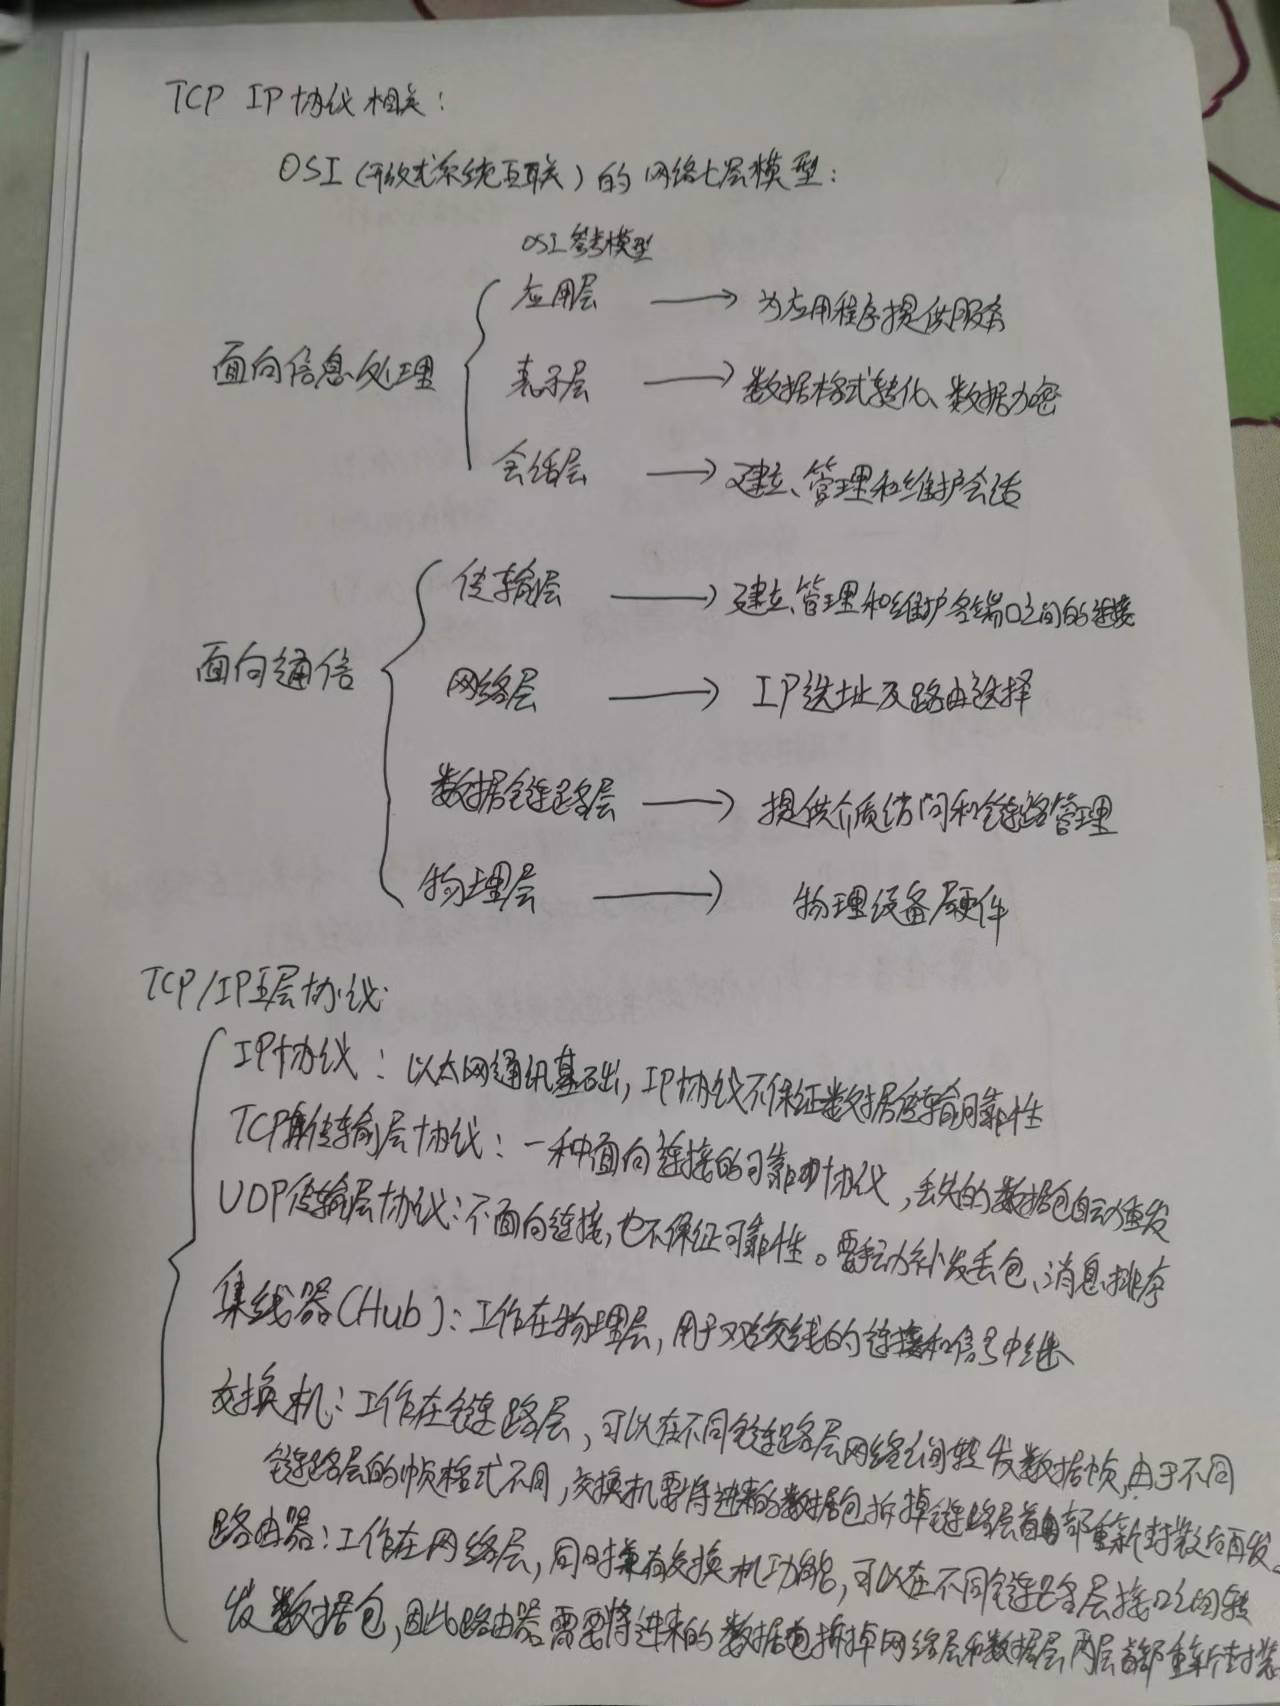 TCP IP协议相关:
OSI(开放式系统互联)的网络七层模型:
OSI参考模型
面向信息处理
应用层 → 为应用程序提供服务
表示层 → 数据格式转化、数据加密
会话层 → 建立、管理和维护会话
面向通信
传输层 → 建立、管理和维护各端口之间的连接
网络层 → IP选址及路由选择
数据链路层 → 提供介质访问和链路管理
物理层 → 物理设备层硬件
TCP/IP五层协议
IP协议: 以太网通讯基础, IP协议不保证数据传输可靠性
TCP传输层协议: 一种面向连接的可靠协议, 丢失的数据包自动重发
UDP传输层协议: 不面向连接, 也不保证可靠性。需手动补发丢包、消息排序
集线器(Hub): 工作在物理层, 用于双绞线的连接和信号中继
交换机: 工作在链路层, 可以在不同链路层网络之间转发数据帧, 由于不同
链路层的帧格式不同, 交换机要将进来的数据包拆掉链路层首部重新封装后再发。
路由器: 工作在网络层, 同时兼有交换机功能, 可以在不同链路层接口之间转
发数据包, 因此路由器需要将进来的数据包拆掉网络层和数据层两层首部重新封装